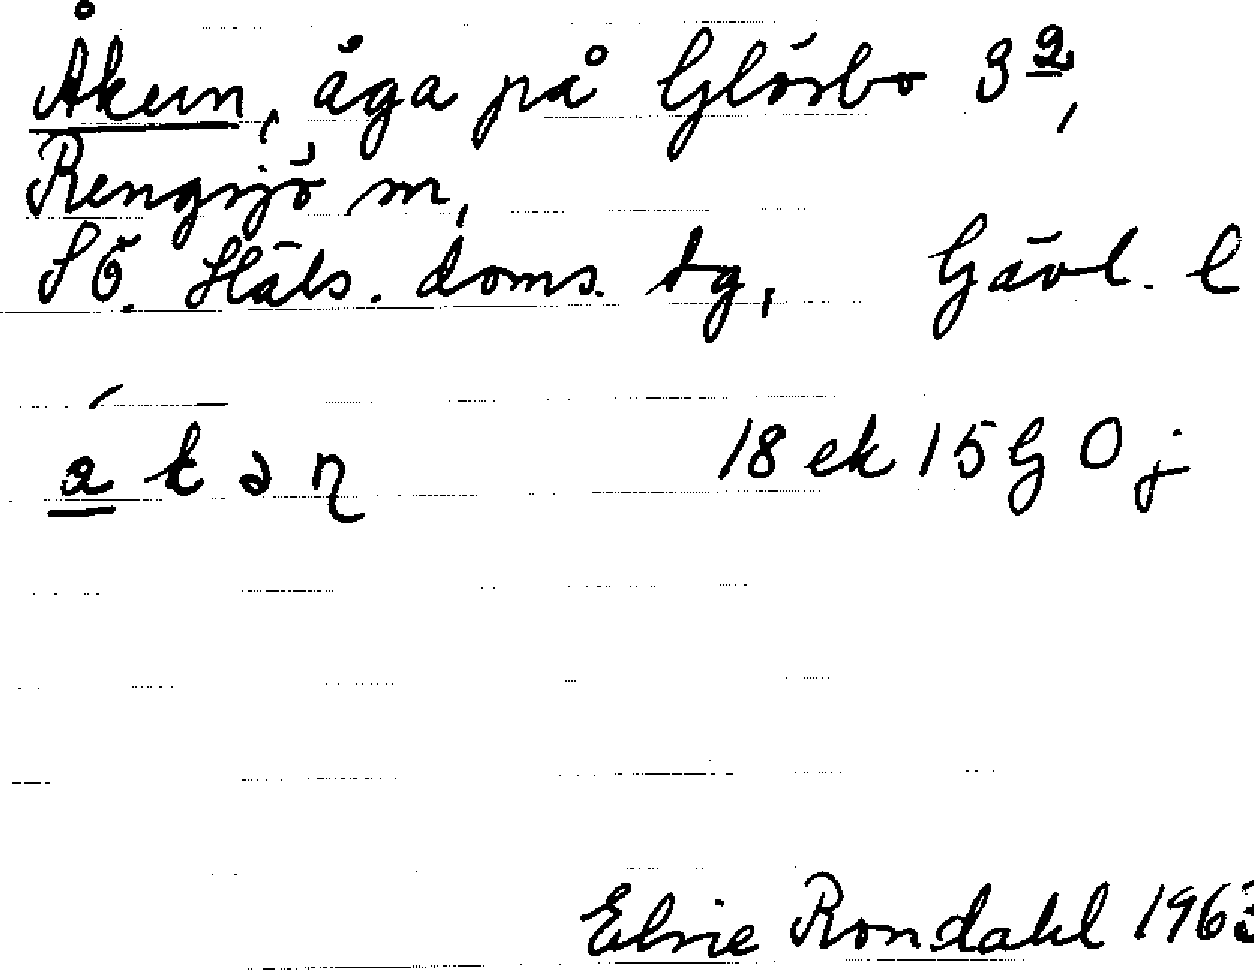 Åkern, äga på Glösbo 3 2,
Rengsjö sn,
SÖ. Häls. doms. tg, Gävl. l
á k ə ɳ 18 ek 15 G O j
Elvie Rondahl 1963